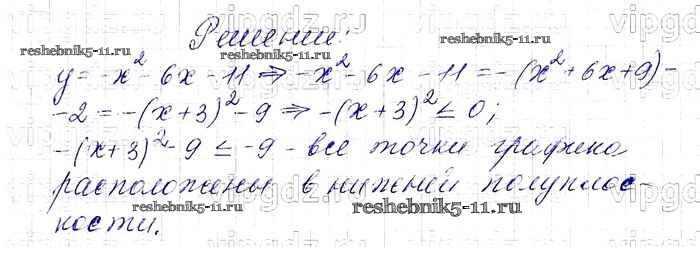 Решение:
y = -x² - 6x - 11 ⇒ -x² - 6x - 11 = -(x² + 6x + 9) -
- 2 = -(x+3)² - 9 ⇒ -(x+3)² ≤ 0;
-(x+3)² - 9 ≤ -9 - все точки графика
расположены в нижней полуплос-
кости.
vipgdz.ru
reshebnik5-11.ru
reshebnik5-11.ru
reshebnik5-11.ru
reshebnik5-11.ru